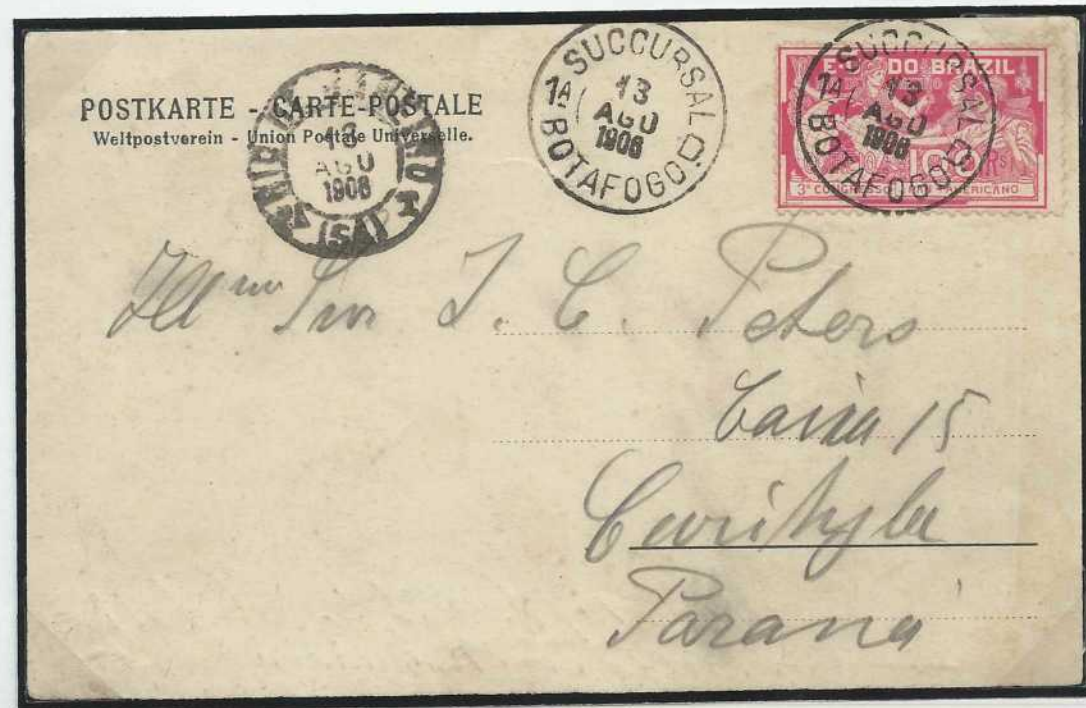 POSTKARTE - CARTE-POSTALE
Weltpostverein - Union Postale Universelle.
13
AGO
1906
(5A)
SUCCURSAL D
1A
13
AGO
1906
BOTAFOGO
DO BRAZIL
SUCCURSAL D
1A
13
AGO
1906
BOTAFOGO
100 Rs
3º CONGRESSO
AMERICANO
Illmo Snr J. C. Peters
Caixa 15
Curityba
Paraná